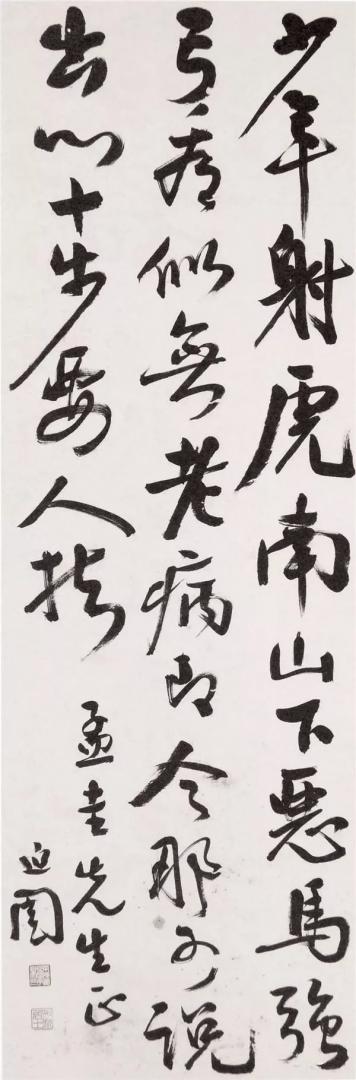 少年射虎南山下惡馬強
弓看似無老病即今那可說
出門十步要人扶
孟圭先生正